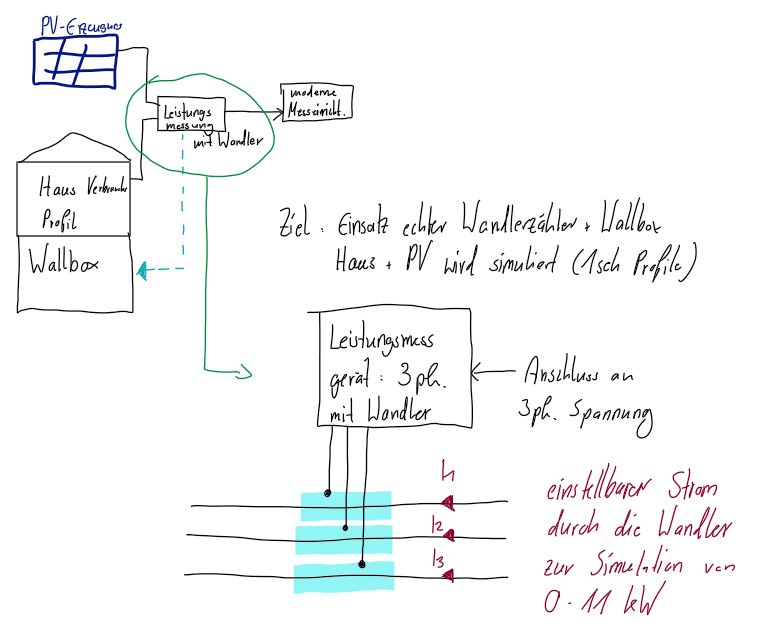 PV-Erzeuger
Leistungs
messung
mit Wandler
moderne
Messeinricht.
Haus Verbrauchs
Profil
Wallbox
Ziel : Einsatz echter Wandlerzähler + Wallbox
Haus + PV wird simuliert (1sch Profile)
Leistungsmess
gerät : 3ph.
mit Wandler
Anschluss an
3ph. Spannung
I1
I2
I3
einstellbarer Strom
durch die Wandler
zur Simulation von
0-11 kW